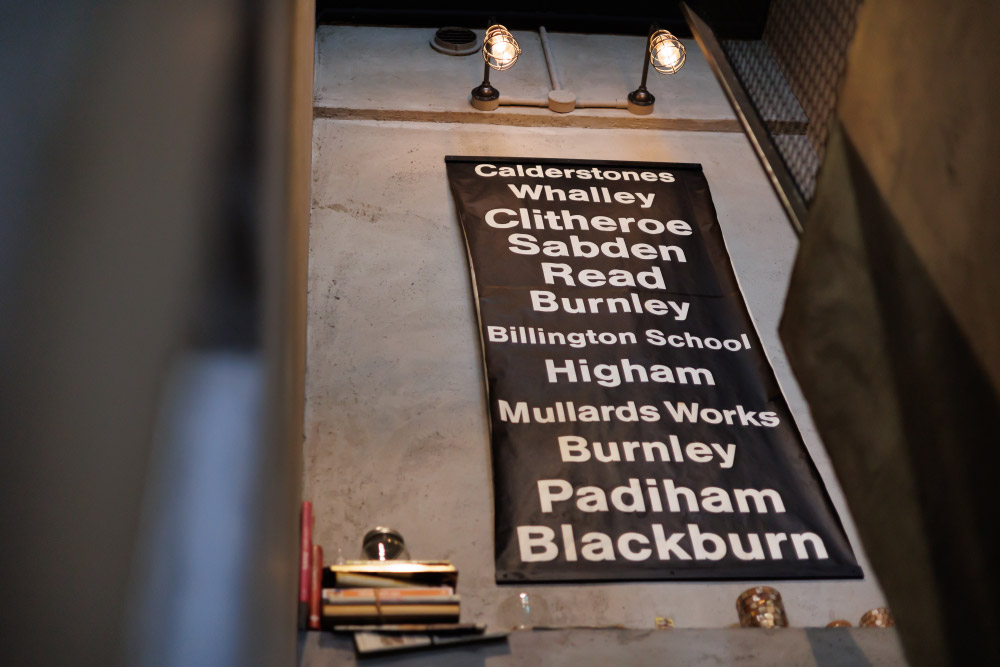 Calderstones
Whalley
Clitheroe
Sabden
Read
Burnley
Billington School
Higham
Mullards Works
Burnley
Padiham
Blackburn